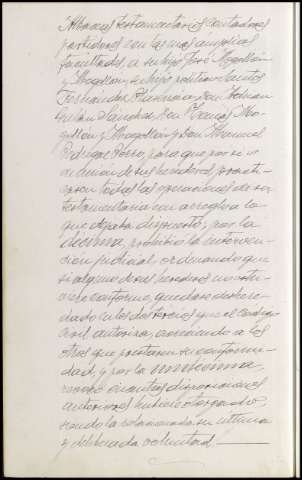 Albaceas testamentarios contadores
partidores con las mas amplias
facultades, a su hijo José Mogollón
y Mogollón, su hijo politico Santos
Fernández Don
Sanchez, Don Tomás Mo-
gollon y Mogollón y Don Manuel
Rodriguez para que por si o
de sus herederos practi-
caran todas las operaciones de su
testamentaria con arreglo a lo
que dejaba dispuesto; por la
decima, prohibió la interven-
ción judicial, ordenando que
si alguno de sus herederos no estu-
viere conforme, quedare deshere-
dado en los dos tercios que el Codigo
Civil autoriza, acreciendo a los
otros que prestaren su conformi-
dad, y por la undecima,
revocó cuantas disposiciones
anteriores hubiere otorgado,
siendo la relacionada su ultima
y deliberada voluntad.